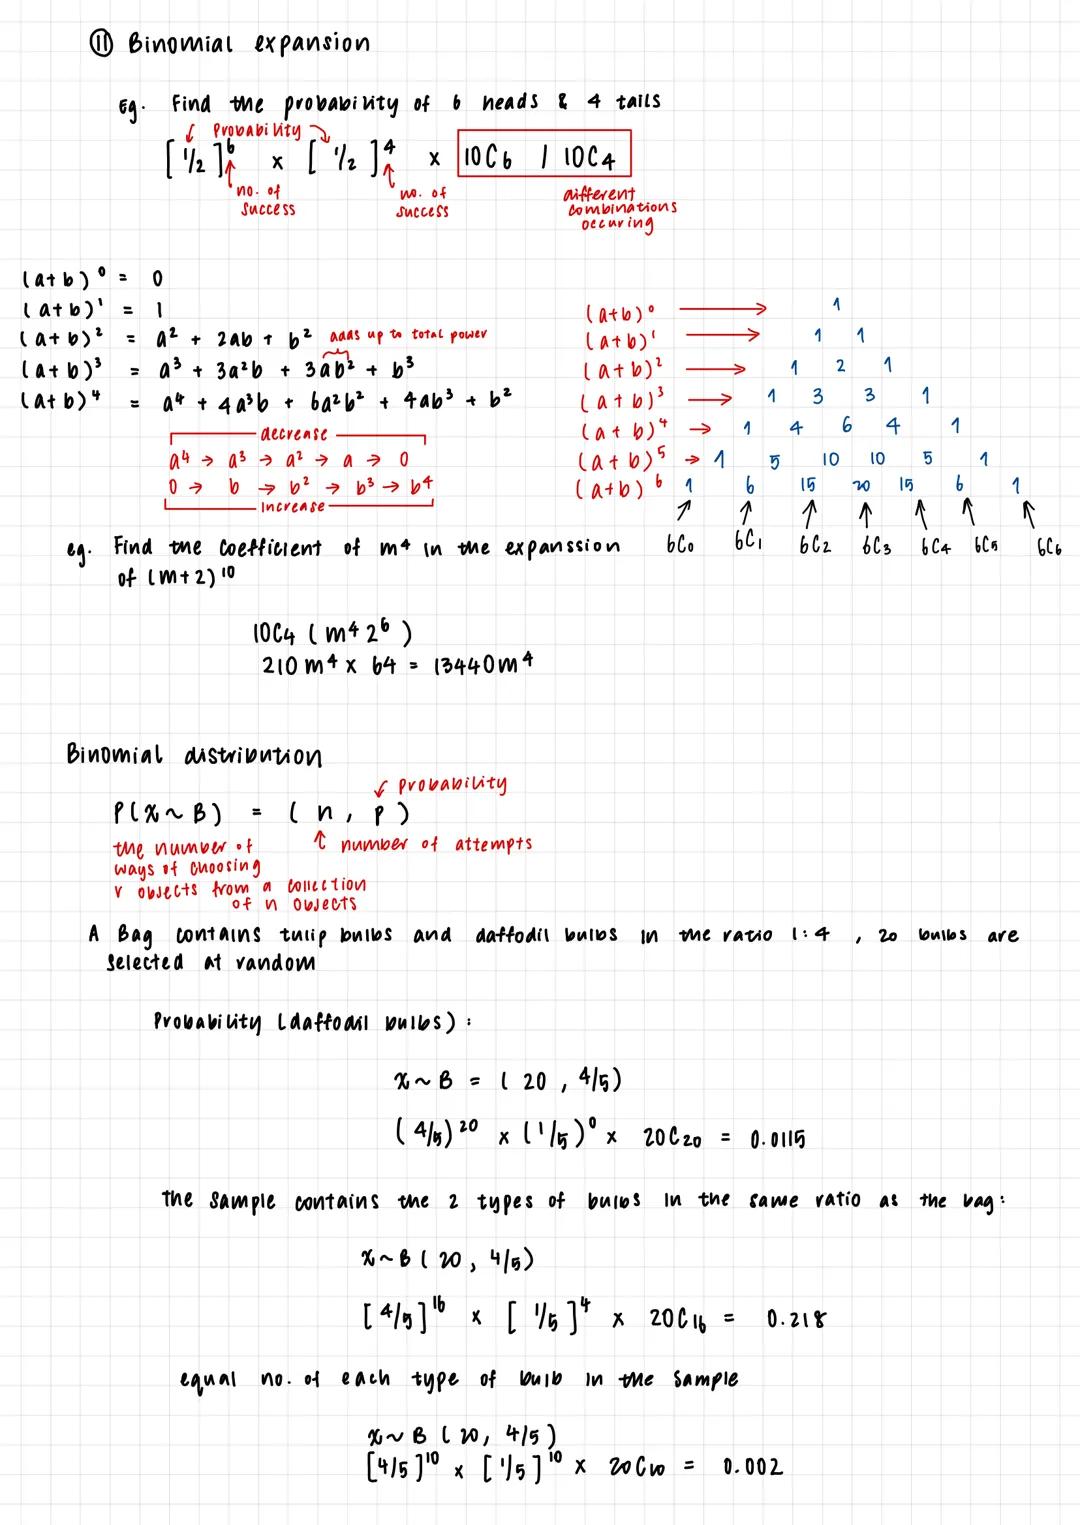 ⑪ Binomial expansion
Eg. Find the probability of 6 heads & 4 tails
Probability
[1/2]⁶ x [1/2]⁴ x 10C6 / 10C4
no. of success
no. of success
different combinations occuring
(a+b)⁰ = 0
(a+b)¹ = 1
(a+b)² = a² + 2ab + b² adds up to total power
(a+b)³ = a³ + 3a²b + 3ab² + b³
(a+b)⁴ = a⁴ + 4a³b + 6a²b² + 4ab³ + b²
decrease
a⁴ → a³ → a² → a → 0
0 → b → b² → b³ → b⁴
increase
(a+b)⁰ → 1
(a+b)¹ → 1 1
(a+b)² → 1 2 1
(a+b)³ → 1 3 3 1
(a+b)⁴ → 1 4 6 4 1
(a+b)⁵ → 1 5 10 10 5 1
(a+b)⁶ 1 6 15 20 15 6 1
6C0 6C1 6C2 6C3 6C4 6C5 6C6
eg. Find the coefficient of m⁴ in the expanssion
of (m+2)¹⁰
10C4 (m⁴2⁶)
210m⁴ x 64 = 13440m⁴
Binomial distribution
probability
P(x~B) = (n, p)
number of attempts
the number of
ways of choosing
r objects from a collection
of n objects
A Bag contains tulip bulbs and daffodil bulbs in the ratio 1:4, 20 bulbs are
selected at random
Probability (daffodil bulbs):
x~B = (20, 4/5)
(4/5)²⁰ x (1/5)⁰ x 20C20 = 0.0115
the sample contains the 2 types of bulbs in the same ratio as the bag:
x~B (20, 4/5)
[4/5]¹⁶ x [1/5]⁴ x 20C16 = 0.218
equal no. of each type of bulb in the sample
x~B (20, 4/5)
[4/5]¹⁰ x [1/5]¹⁰ x 20C10 = 0.002